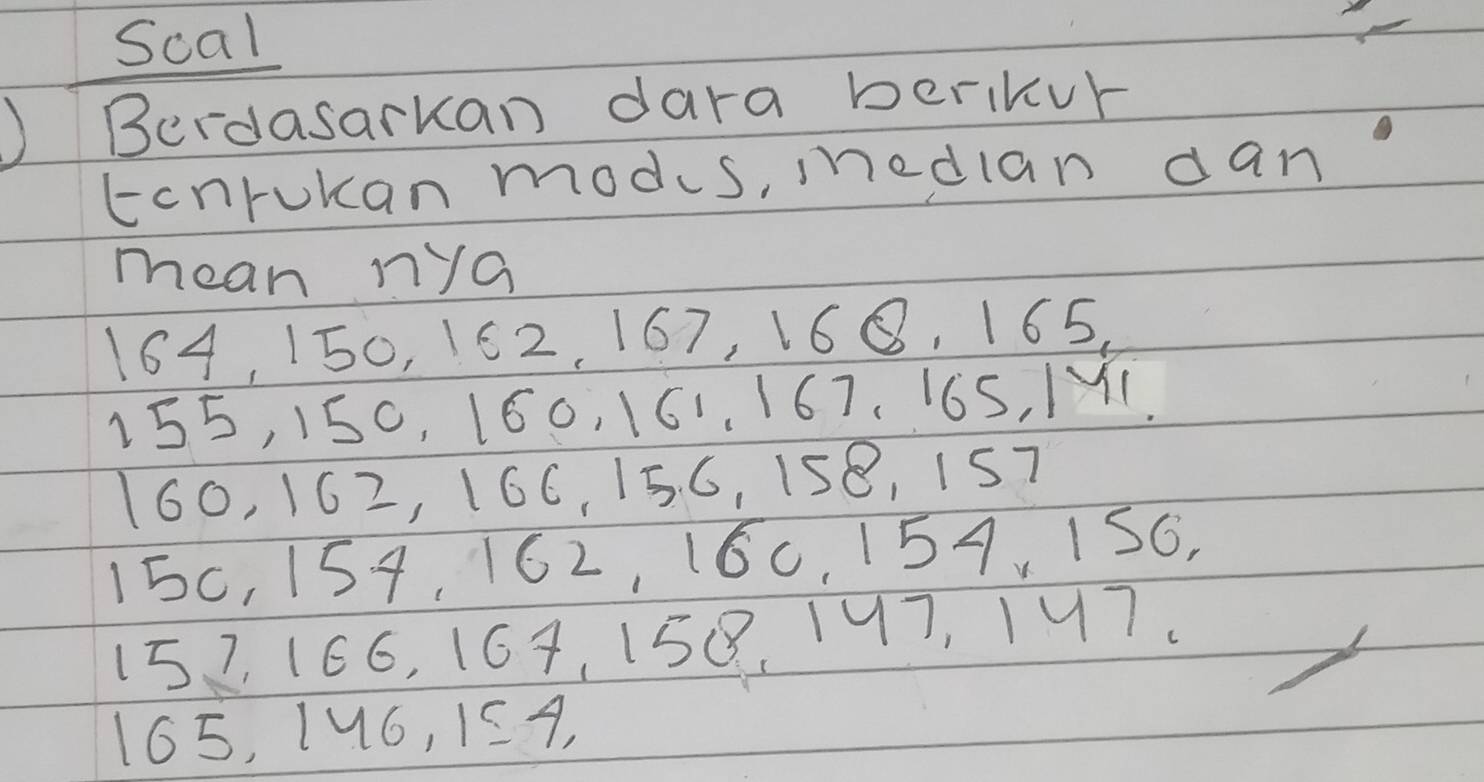 Soal
) Berdasarkan data berikut
tentukan modus, median dan
mean nya
164, 150, 162, 167, 168, 165,
155, 150, 160, 161, 167, 165, 141.
160, 162, 166, 156, 158, 157
150, 154, 162, 160, 154, 156,
157, 166, 164, 158, 147, 147.
165, 146, 154,